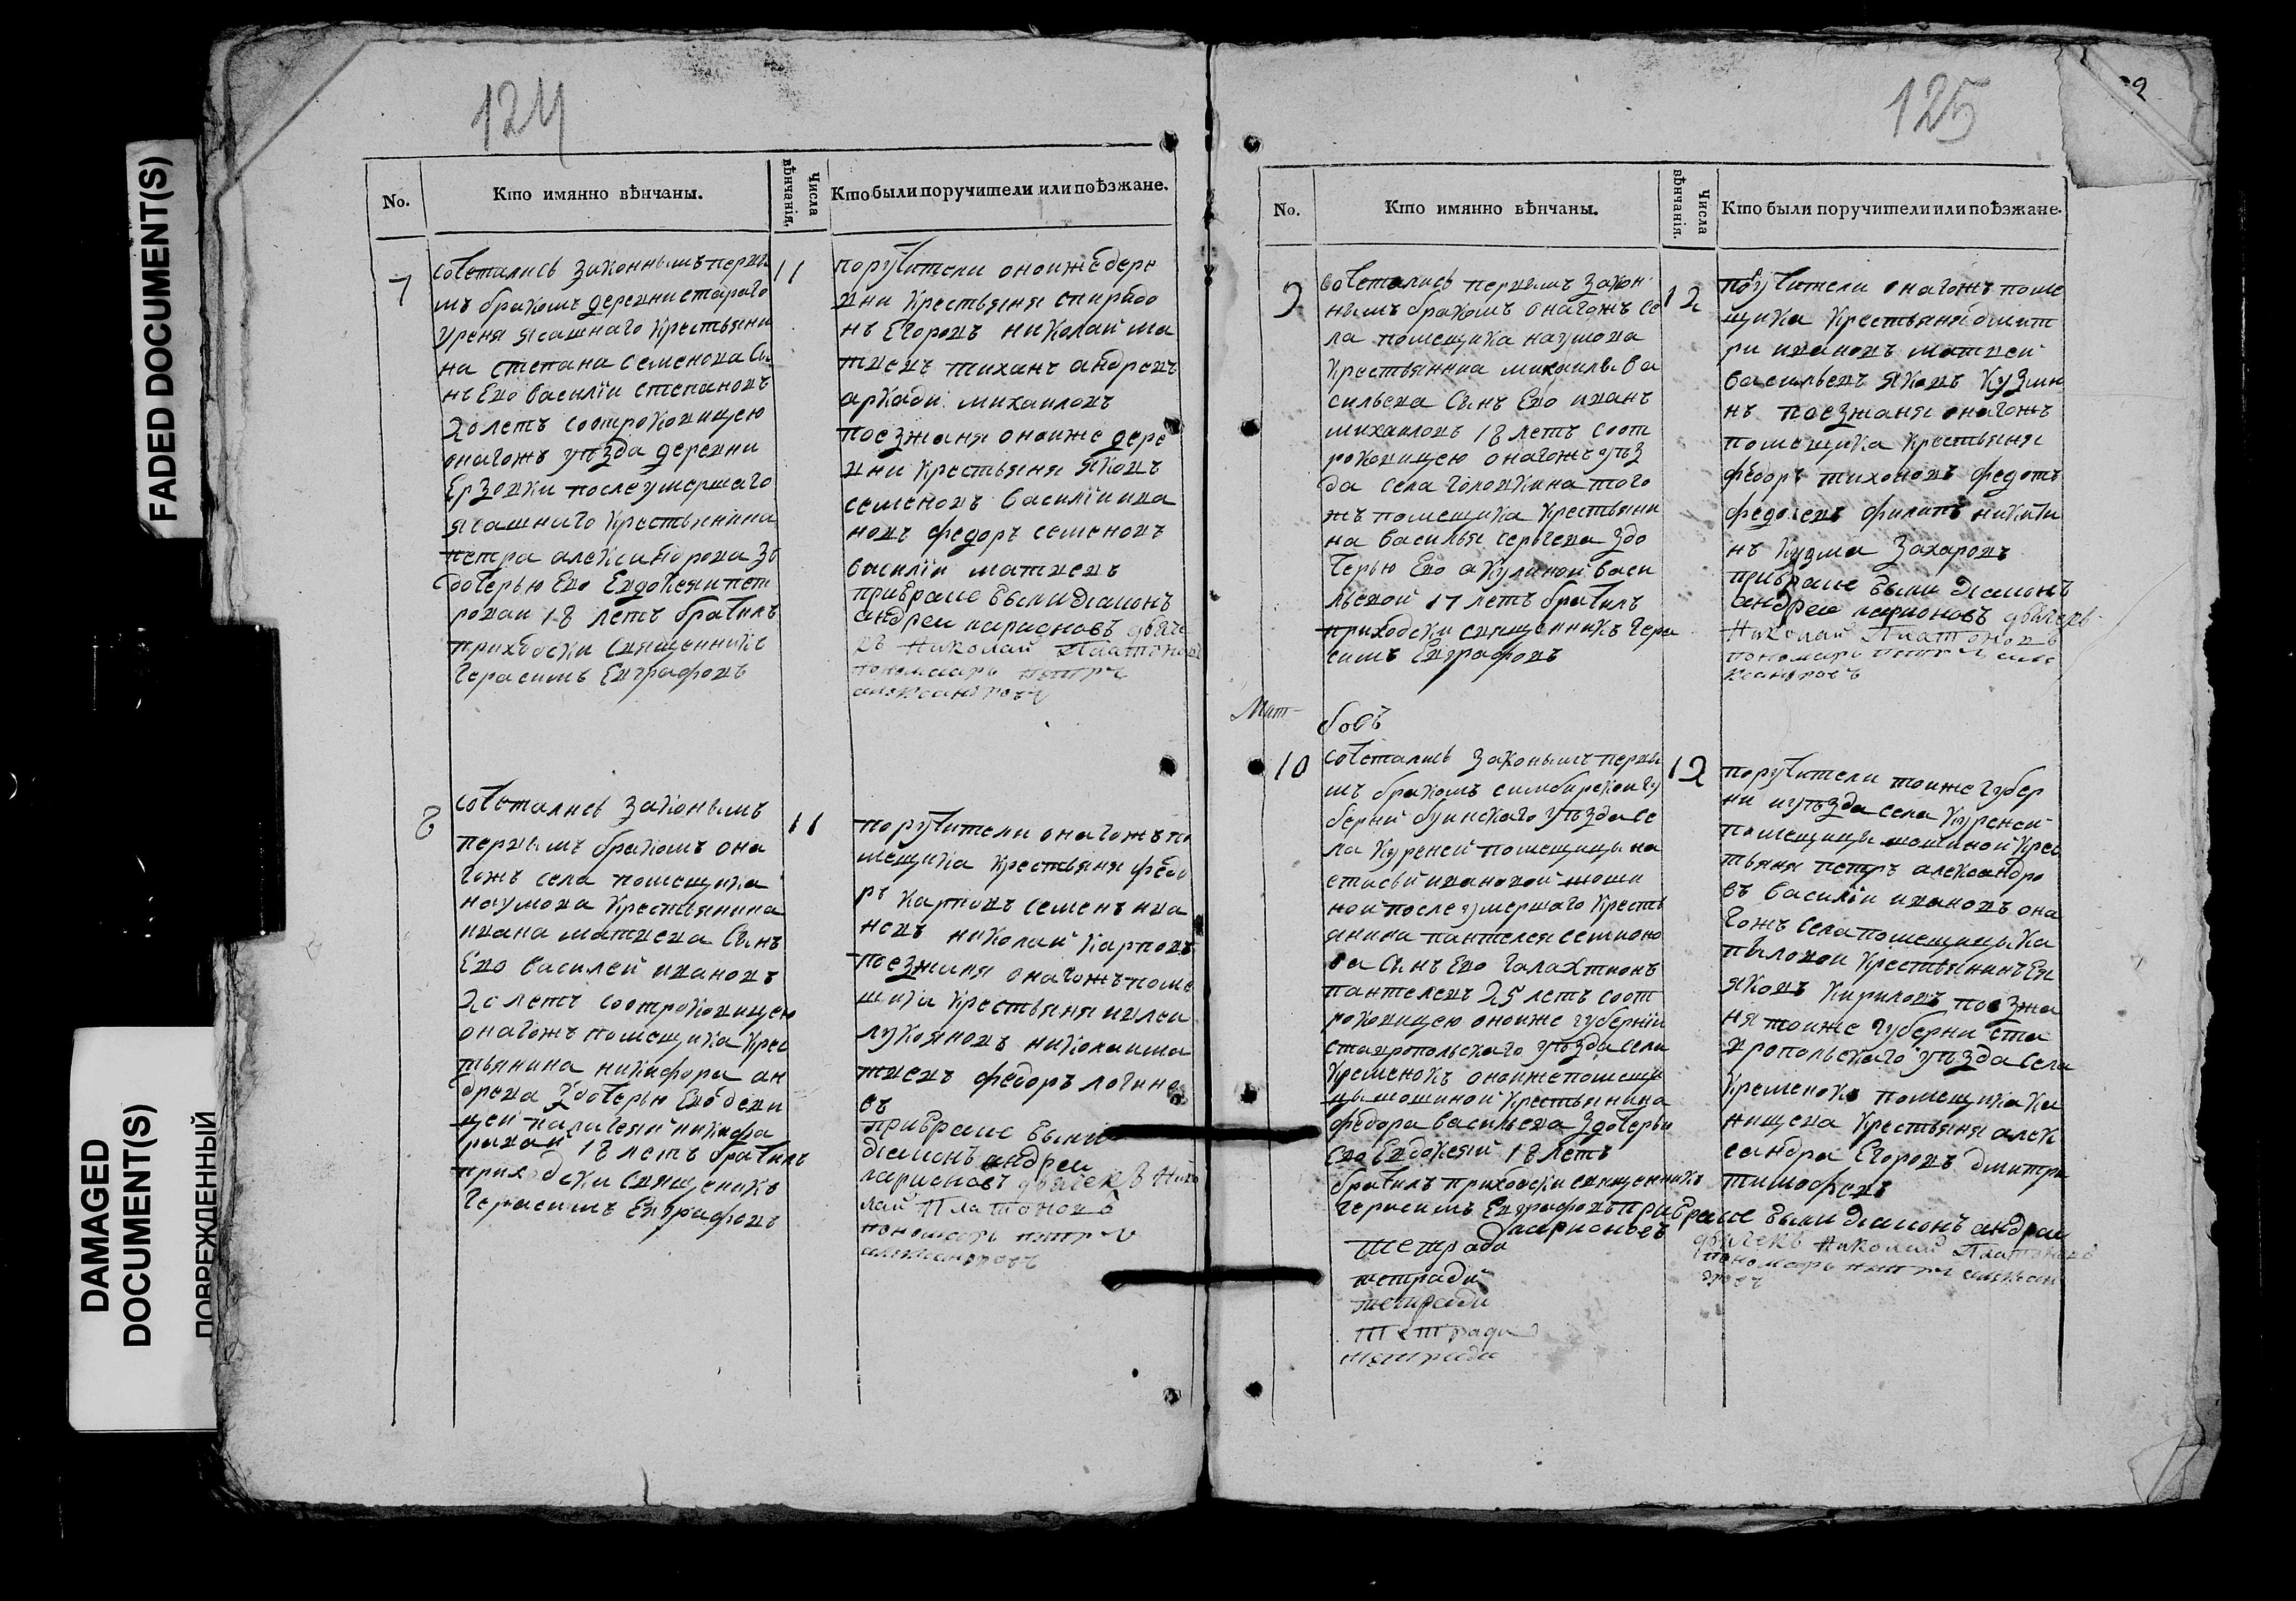 FADED DOCUMENT(S)
DAMAGED
DOCUMENT(S)
ПОВРЕЖДЕННЫЙ
124
No.
Кто имянно вѣнчаны.
Числа
вѣнчанія.
Кто были поручители или поѣзжане.
7
сочетались законнымъ первы
мъ бракомъ деревни стараго
уреня ясашнаго крестьяни
на степана семенова сы
нъ ево василiи степановъ
20 летъ соотроковицею
онагожъ уѣзда деревни
Ерзовки послеумершаго
ясашнаго крестьянина
петра александрова зъ
дочерью ево Евдокеяи пет
роваи 18 летъ брачилъ
приходски священникъ
Герасимъ Евграфовъ
11
поручители онойжедере
вни крестьяня спиридо
нъ Егоровъ николай ма
твеевъ тиханъ андреевъ
аркади михаиловъ
поезжаня оноиже дере
вни крестьяня яковъ
семеновъ василiи ива
новъ федоръ семеновъ
василiи матвеевъ
прибраке были дiаконъ
андреи ларионовъ дьяче
къ Николай Платоновъ
пономарь петръ
александровъ
8
сочетались законымъ
первымъ бракомъ она
гожъ села помещика
наумова крестьянина
ивана матвеева сынъ
Ево василей ивановъ
20 летъ соотроковицею
онагожъ помещика крес
тьянина никифора ан
дреева здочерью Ево деви
цеи палагеяи никифо
раваи 18 летъ брачилъ
приходски священикъ
Герасимъ Евграфовъ
11
поручители онагожъ по
мещика крестьяня федо
ръ карповъ семенъ ива
новъ николай карповъ
поезжаня онагожъ поме
щика крестьяня илеи
лукояновъ николаи ма
твеевъ федоръ логино
въ
прибраке были
дiаконъ андреи
ларионовъ дьячекъ Нико
лай Платоновъ
пономарь петръ
александровъ
125
No.
Кто имянно вѣнчаны.
Числа
вѣнчанія.
Кто были поручители или поѣзжане.
9
сочетались первымъ закон
нымъ бракомъ онагожъ се
ла помещика наумова
крестьянина михаилы ва
сильева сынъ Ево иванъ
михаиловъ 18 летъ соот
роковицею онагожъ уѣз
да села головкина того
жъ помещика крестьяни
на василья сергеева здо
черью Ево акулиной васи
льевой 17 летъ брачилъ
приходски священникъ Гера
симъ Евграфовъ
12
поручители онагожъ поме
щика крестьяня дмит
ри ивановъ матвей
васильевъ яковъ кузмин
нъ поезжаня онагожъ
помещика крестьяня
федоръ тихоновъ федотъ
федосеевъ филипъ никити
нъ кузма захаровъ
прибраке были дiаконъ
андреи ларионовъ дьячекъ
Николай Платоновъ
пономарь петръ алек
сандровъ
10
сочетались законымъ первы
мъ бракомъ симбирскои гу
бернiи буинскаго уѣзда се
ла куреней помещицы на
стасьи ивановой
ной после умершаго кресть
янина пантелея семионо
ва сынъ Ево галахтионъ
пантелеевъ 25 летъ соот
роковицею оноиже губернiи
ставропольскаго уѣзда села
кременокъ оноижепомещи
цы крестьянина
федора васильева здочерью
Ево Евдокеяи 18 летъ
брачилъ приходски священникъ
Герасимъ Евграфовъ прибраке были дiаконъ андреи
ларионовъ
12
поручители тоиже губер
ни иуѣзда села куреней
помещицы крес
тьяня петръ александро
въ василiи ивановъ она
гожъ села помещицы ка
пыловои крестьянинъ
яковъ кириловъ поезжа
ня тоиже губерни ста
вропольскаго уѣзда села
кременокъ помещика ка
нищева крестьяня алек
сандра Егоровъ дмитри
тимофеевъ
дьячекъ Николай Платоновъ
пономарь петръ алексан
дровъ
тетрада
тетради
тетради
тетради
тетради